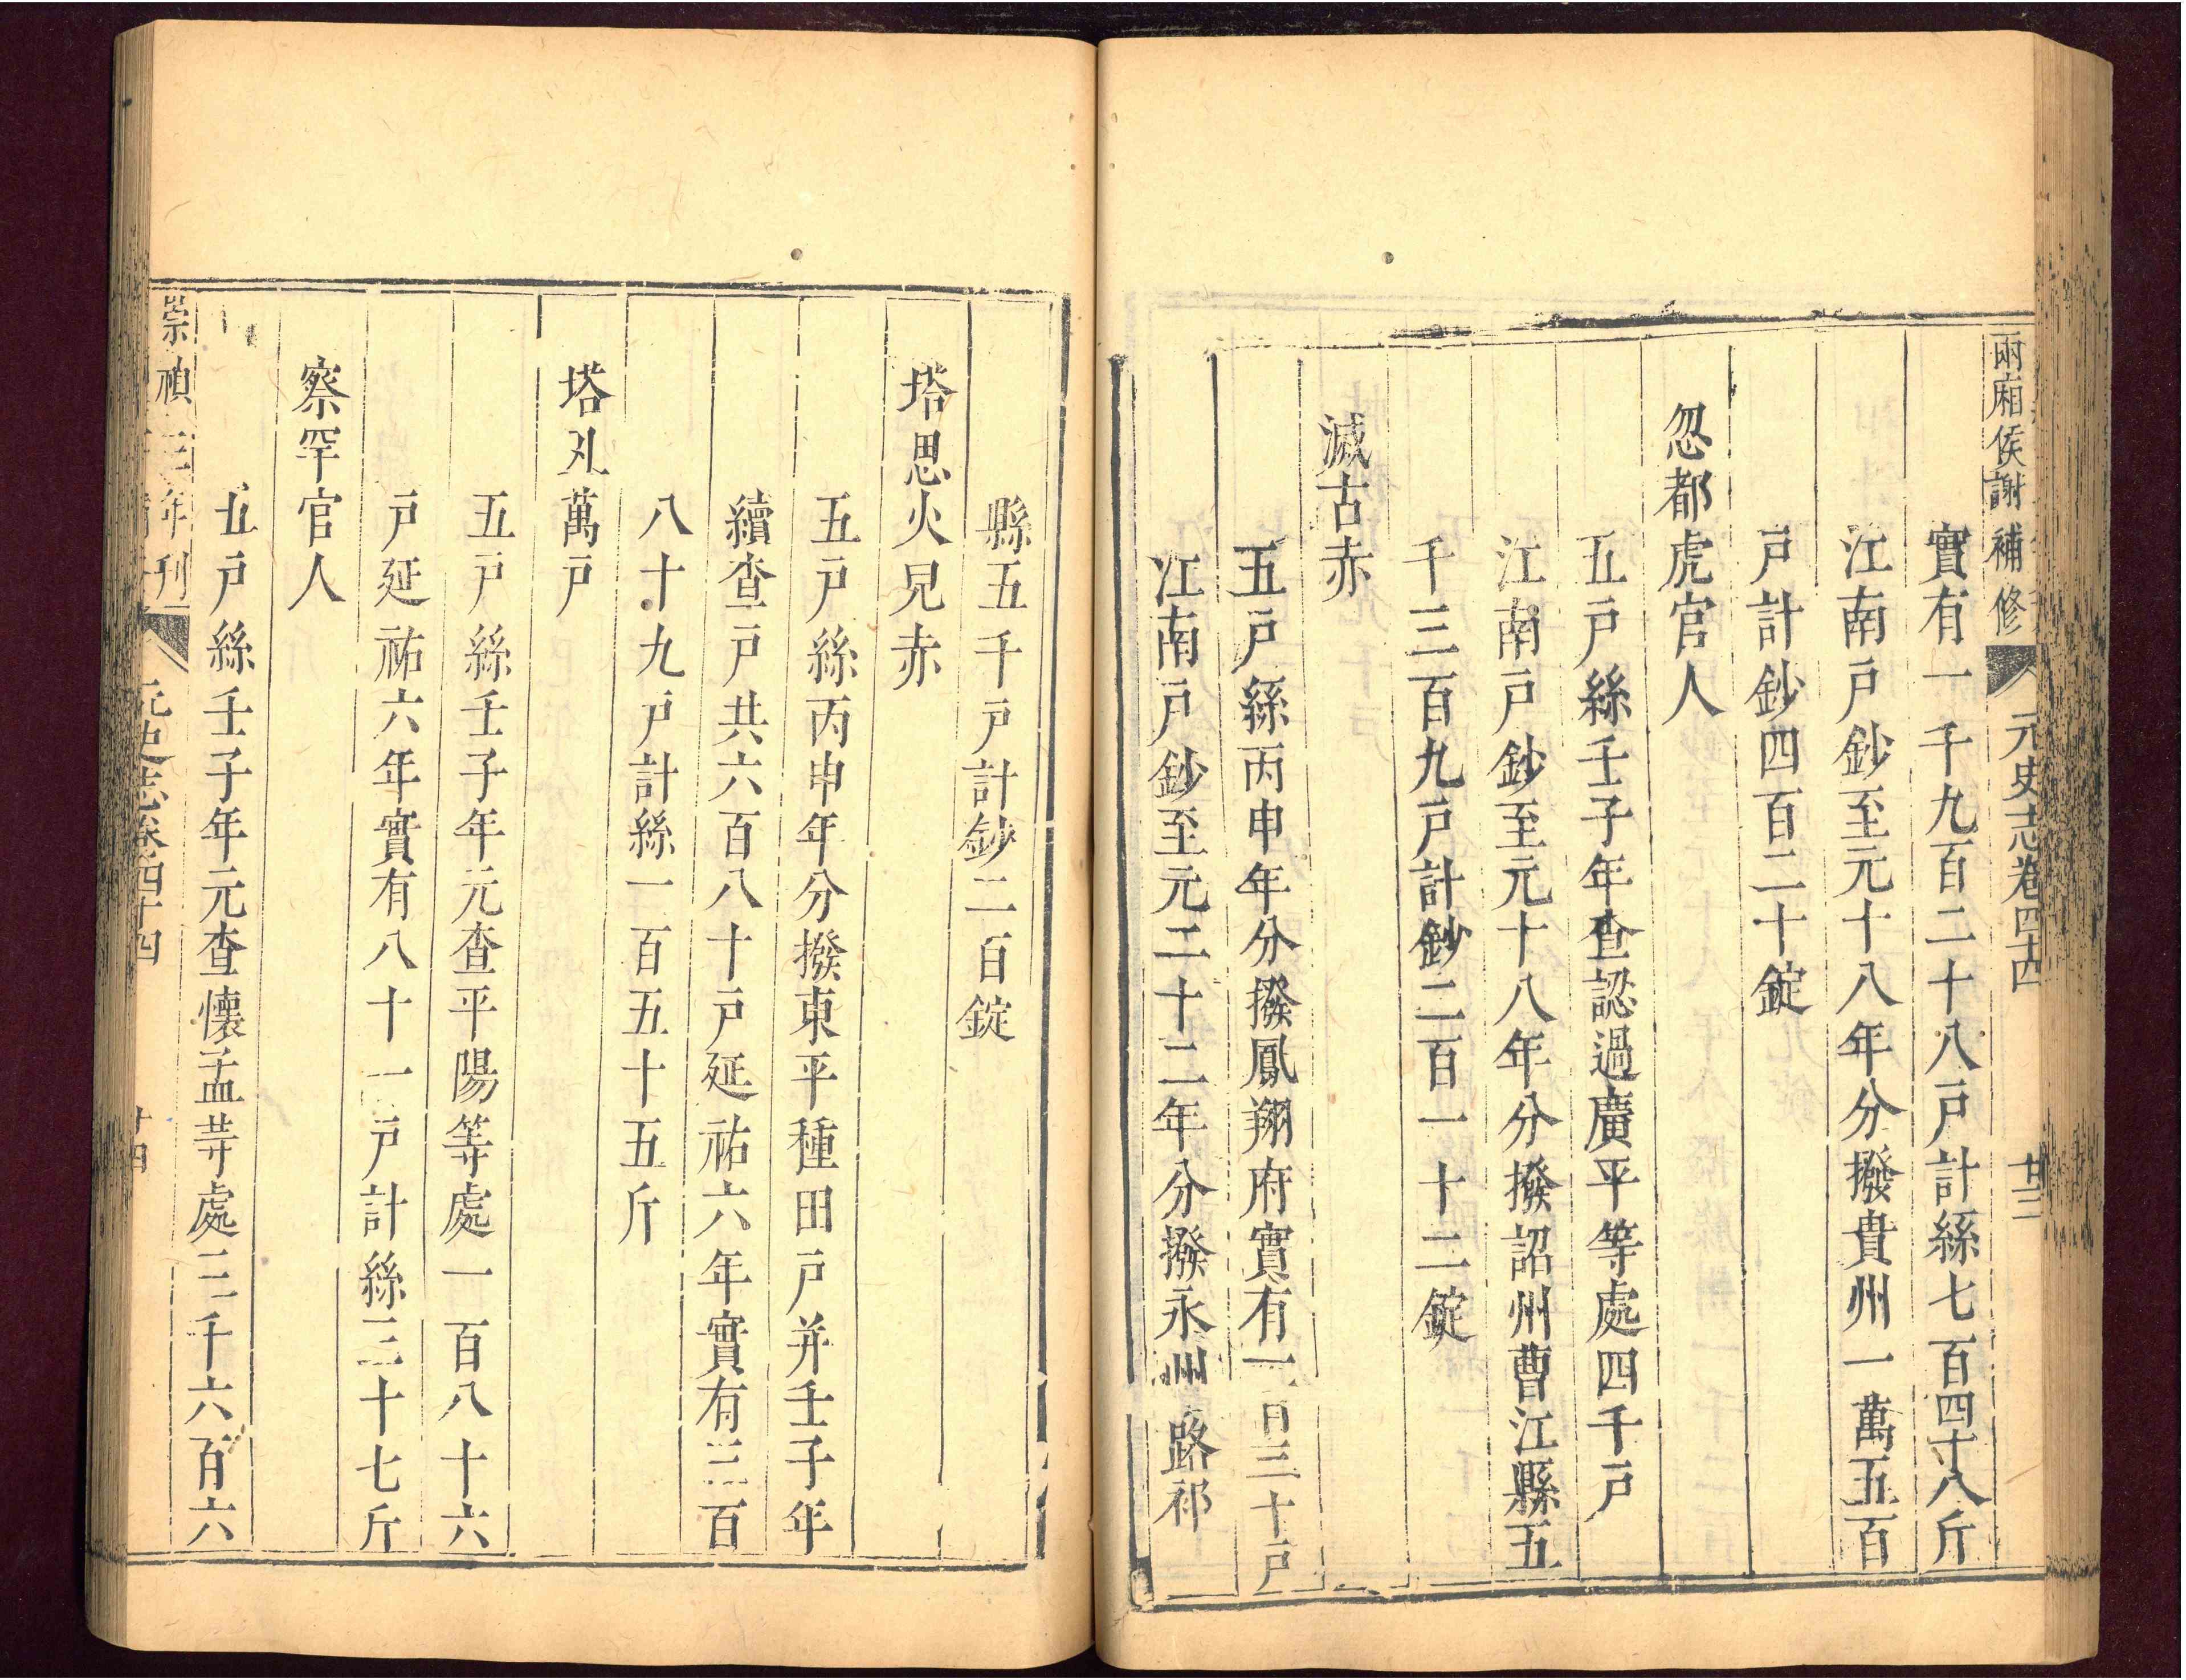 兩廂侯謝補修 元史志卷四十四 廿三
實有一千九百二十八戸計絲七百四十八斤
江南戸鈔至元十八年分撥貴州一萬五百
戸計鈔四百二十錠
忽都虎官人
五戸絲壬子年查認過廣平等處四千戸
江南戸鈔至元十八年分撥詔州曹江縣五
千三百九戸計鈔二百一十二錠
滅古赤
五戸絲丙申年分撥鳳翔府實有一百三十戸
江南戸鈔至元二十二年分撥永州路祁
縣五千戸計鈔二百錠
塔思火兒赤
五戸絲丙申年分撥東平種田戸并壬子年
續查戸共六百八十戸延祐六年實有三百
八十九戸計絲一百五十五斤
塔丸萬戸
五戸絲壬子年元查平陽等處一百八十六
戸延祐六年實有八十一戸計絲三十七斤
察罕官人
五戸絲壬子年元查懷孟䓁處三千六百六
崇禎三年刊 元史志卷四十四 廿四